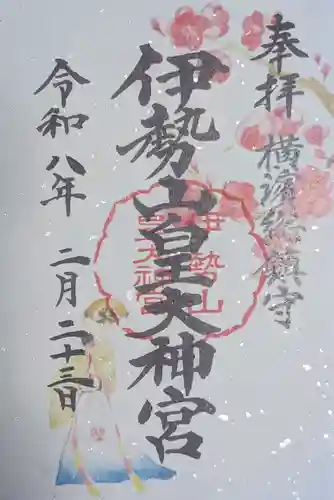 奉拝
横濱総鎮守
伊勢山皇大神宮
伊勢山
皇大神宮
令和八年 二月二十三日